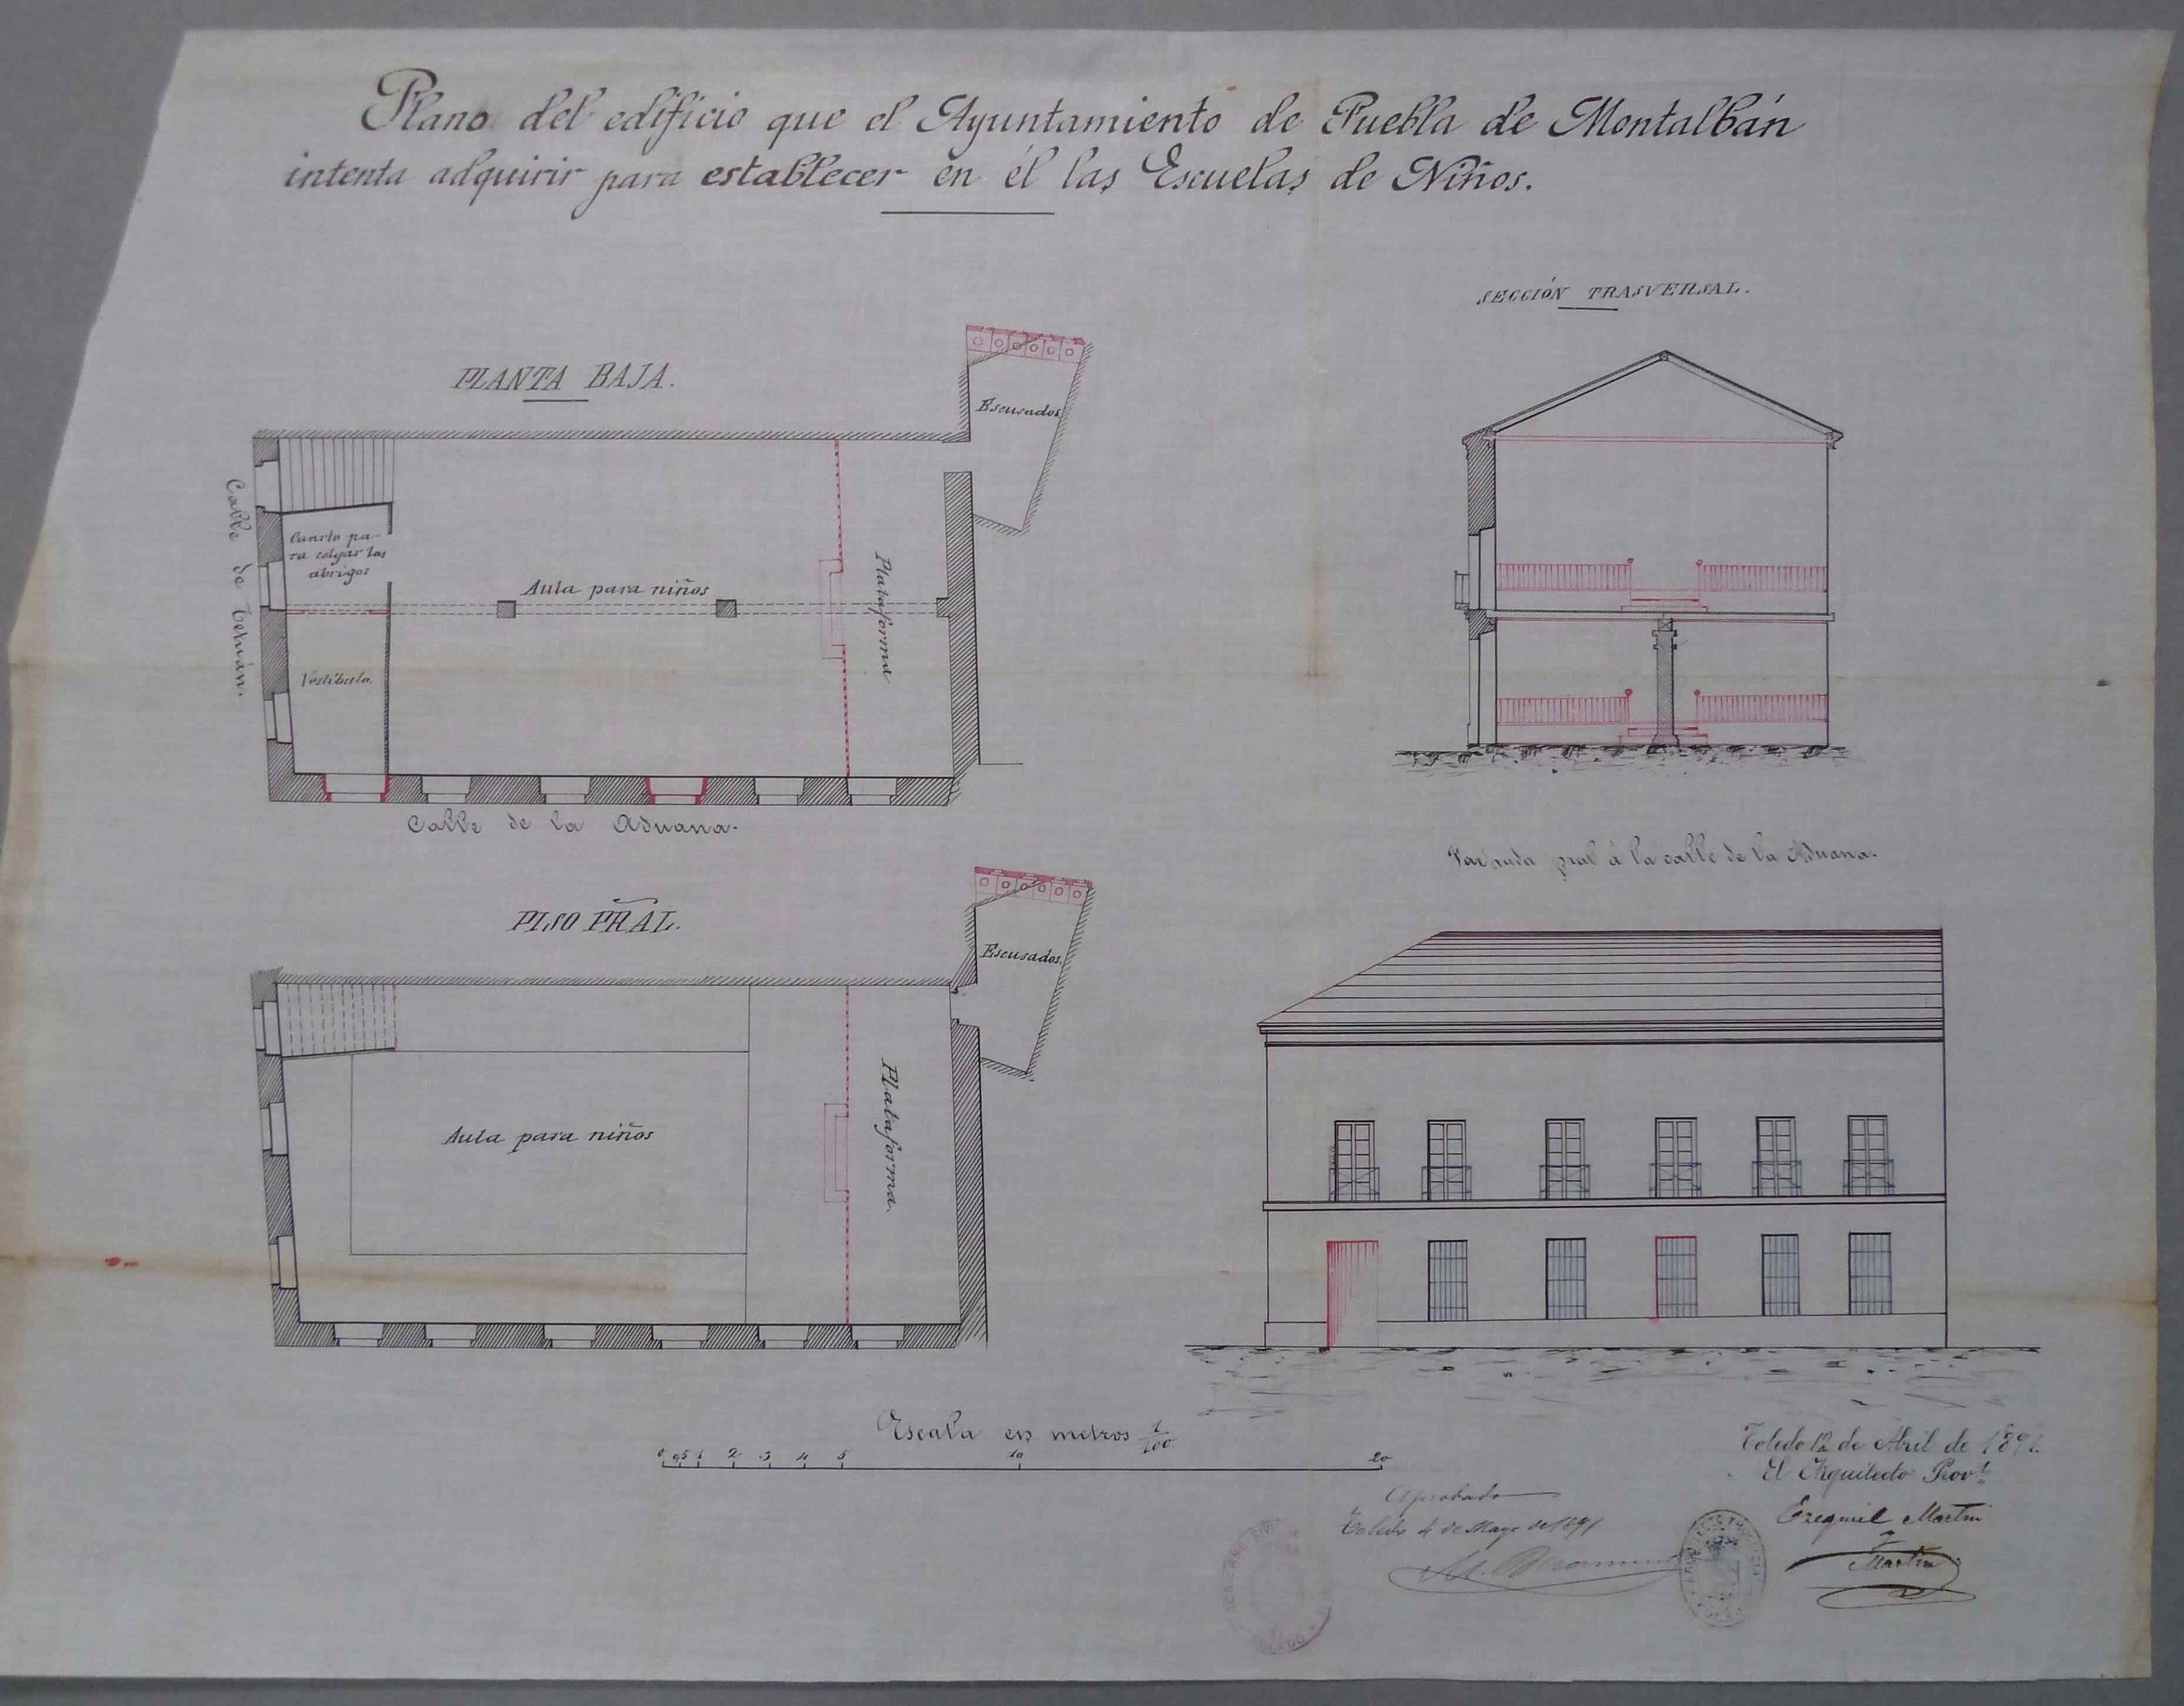 Plano del edificio que el Ayuntamiento de Puebla de Montalbán
intenta adquirir para establecer en él las Escuelas de Niños.
PLANTA BAJA.
Escusados
Calle de Tetuán.
Cuarto pa-
ra colgar los
abrigos
Aula para niños
Plataforma
Vestíbulo.
Calle de la Aduana.
SECCIÓN TRASVERSAL.
PISO PRAL.
Escusados.
Aula para niños
Plataforma.
Fachada pral á la calle de la Aduana.
Escala en metros 1/100
0 0,5 1 2 3 4 5 10 20
Toledo 12 de Abril de 1891.
El Arquitecto Provl
Ezequiel Martin
y
Martin
Aprobado
Toledo 4 de Mayo de 1891